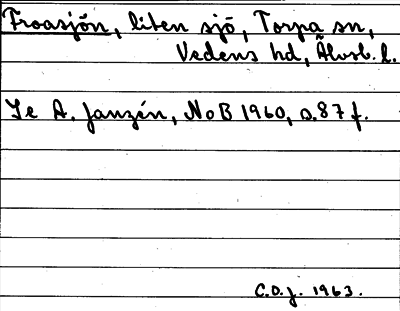 Froasjön, liten sjö, Torpa sn,
Vedens hd, Älvsb. l.
Se A. Janzén, NoB 1960, s.87 f.
C.O.J. 1963.